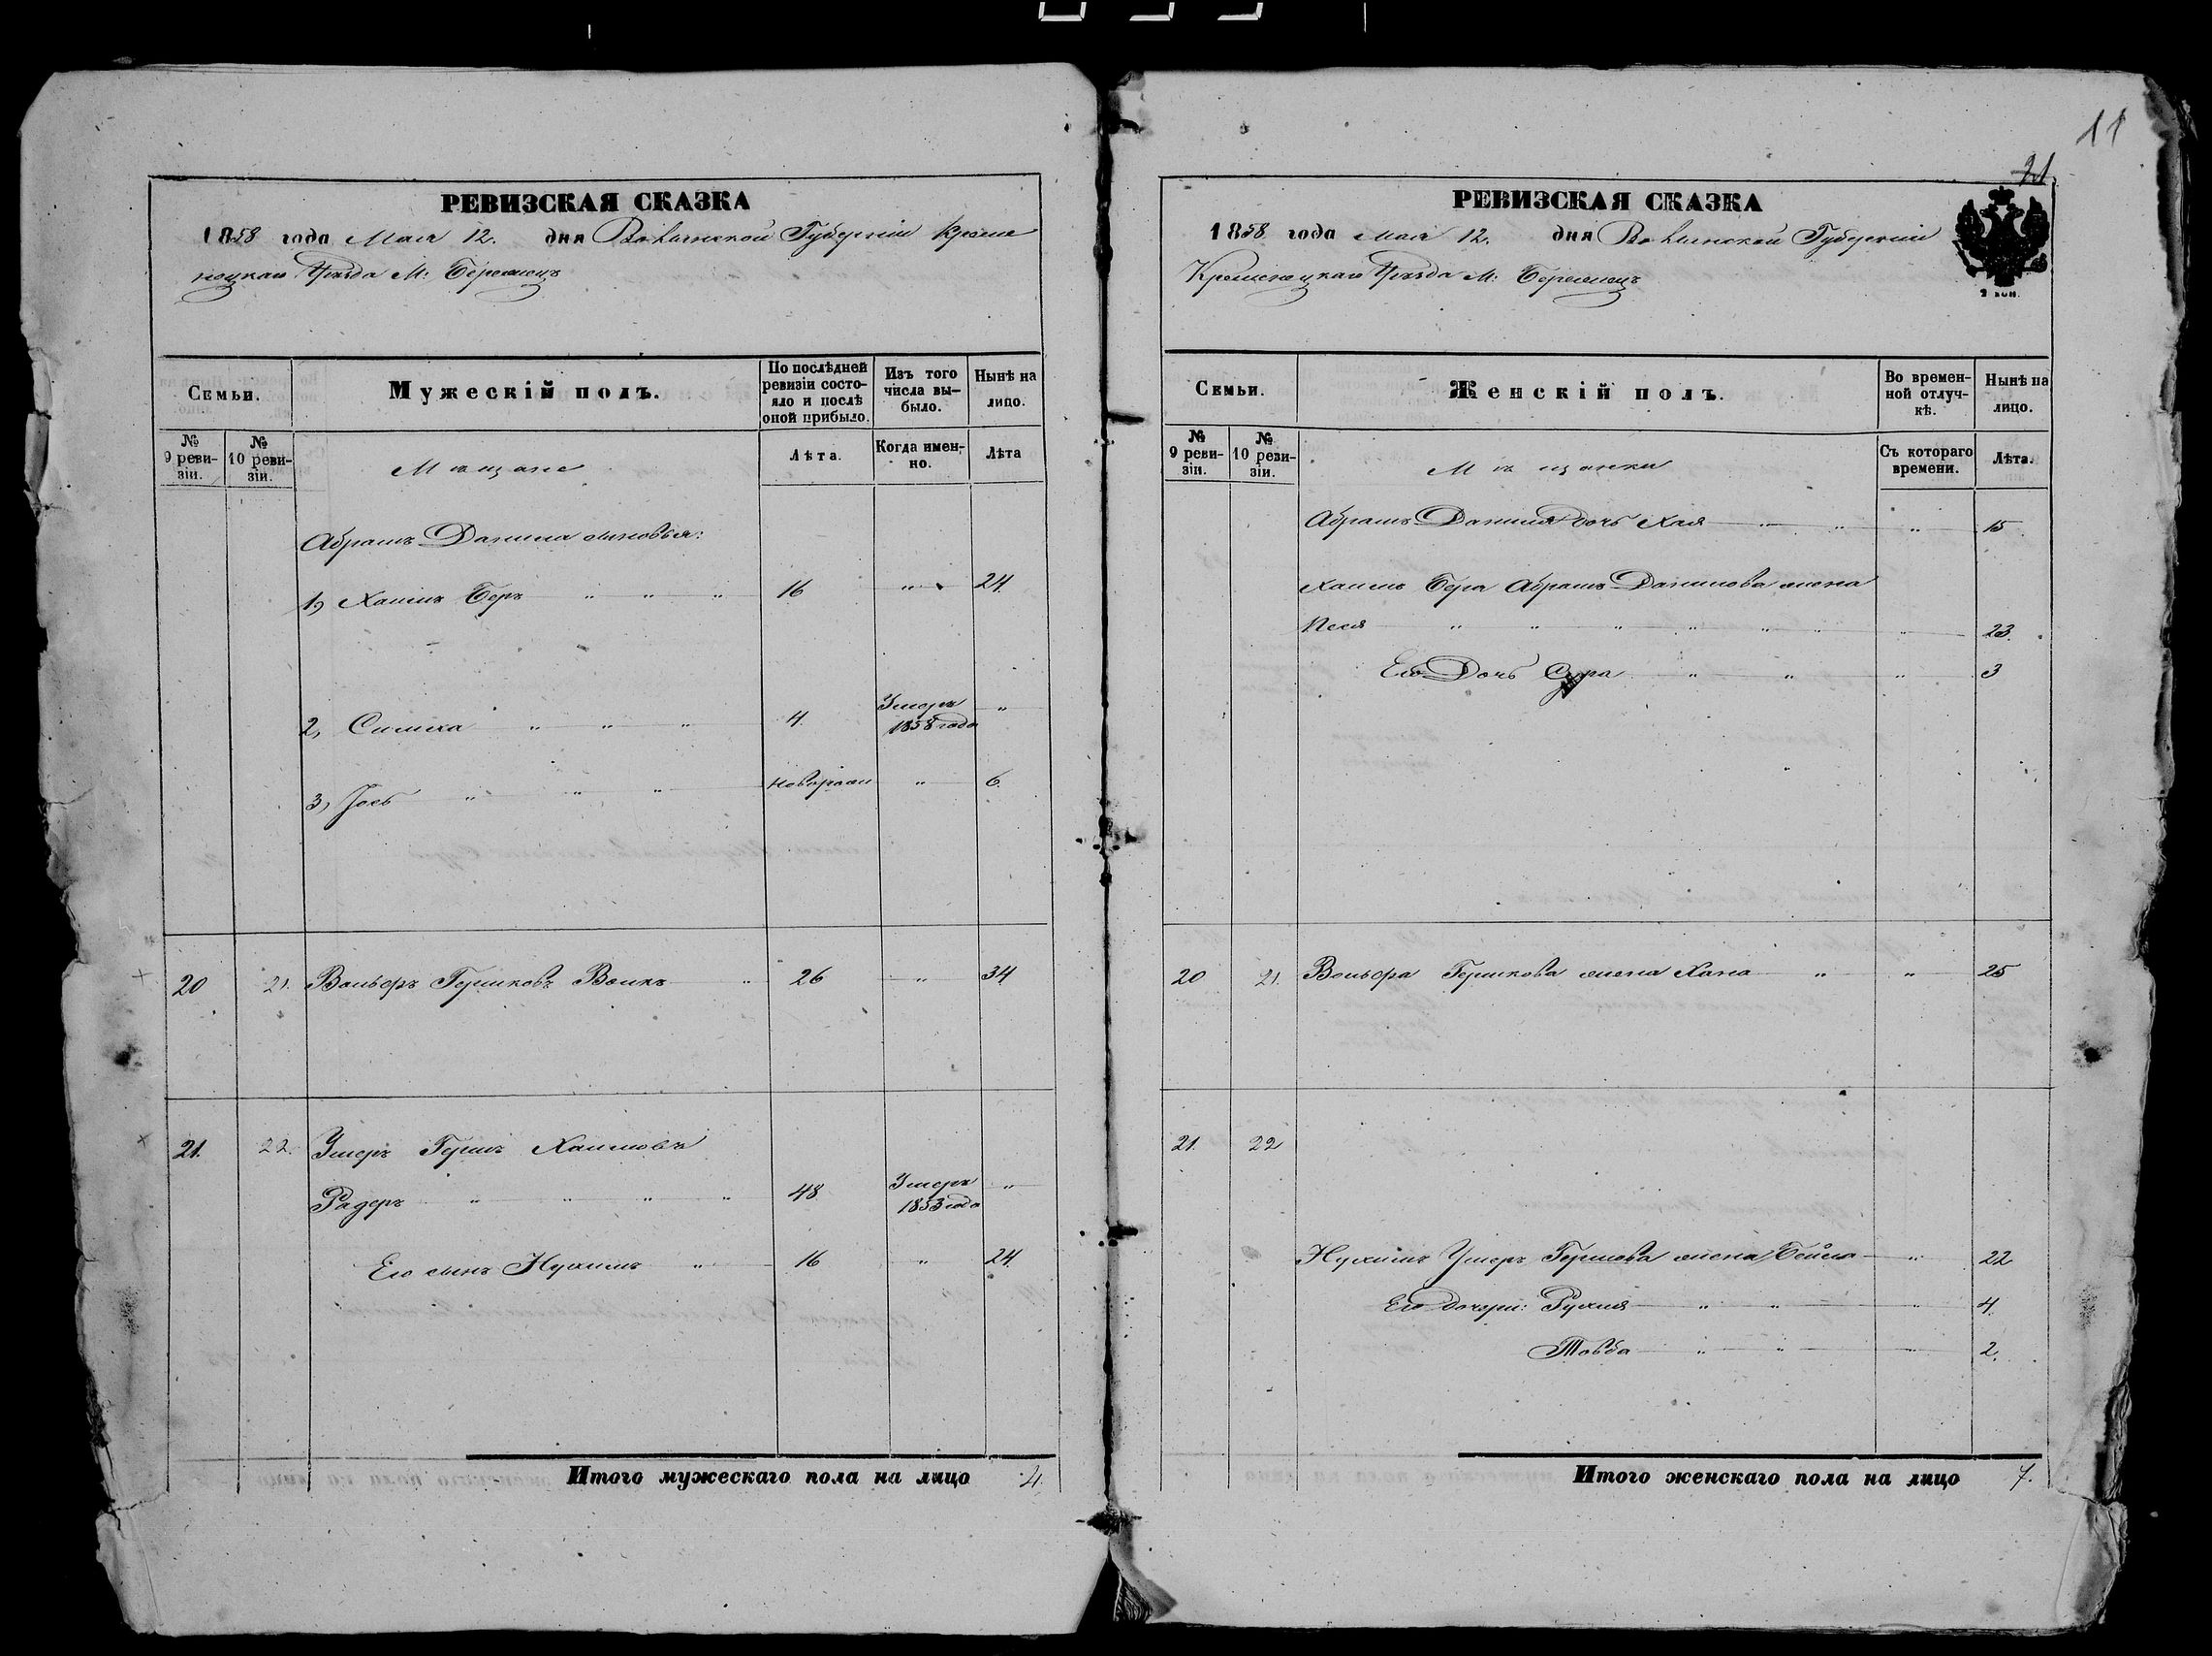 11
21
РЕВИЗСКАЯ СКАЗКА
1858 года Мая 12. дня Волынской Губерніи Креме
нецкаго Уѣзда М: Бережецъ
Семьи.
Мужескій полъ.
По послѣдней ревизіи состояло и послѣ оной прибыло.
Изъ того числа выбыло.
Нынѣ на лицо.
№ 9 ревизіи.
№ 10 ревизіи.
Мѣщане
Лѣта.
Когда именно.
Лѣта
Абрамъ Данила сыновья:
1, Хаимъ Беръ " " " 16 " 24.
2, Симха " " " 4. Умеръ 1858 года "
3, Іось " " " Новорожд " 6.
20 21. Вольфъ Гершковъ " 26 " 34
21. 22. Умеръ Гершъ Хаимовъ
" " " " 48 Умеръ 1853 года "
Его сынъ Нухимъ " 16 " 24.
Итого мужескаго пола на лицо 4.
РЕВИЗСКАЯ СКАЗКА
1858 года Мая 12. дня Волынской Губерніи
Кременецкаго Уѣзда М: Бережецъ
2 коп.
Семьи.
Женскій полъ.
Во временной отлучкѣ.
Нынѣ на лицо.
№ 9 ревизіи.
№ 10 ревизіи.
Мѣщанки
Съ котораго времени.
Лѣта.
Абрамъ Данила дочь Хая " " " 15
Хаимъ Бера Абрамъ Данилова жена
Песя " " " " " " " 23.
Его Дочь Сура " " " 3
20 21. Вольфа Гершкова жена Хана " " 25
21. 22
Нухимъ Умеръ Гершова жена Бейла " 22
Его дочери: Рухля " " " 4.
Товба " " " 2.
Итого женскаго пола на лицо 7.